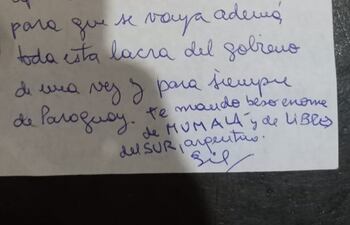 para que se vaya ademá
toda esta lacra del gobieno
de una vez y para siempre
de Paraguay. te mando beso enorme
de MUMALÁ y de LIBRES
del SUR, argentino.